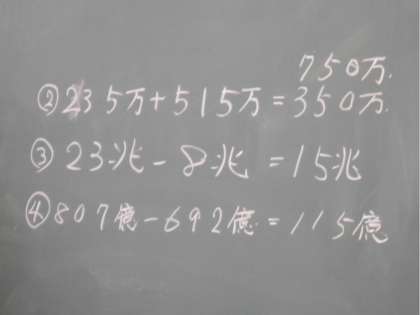 750万.
②235万+515万=350万.
③23兆-8兆=15兆
④807億-692億=115億